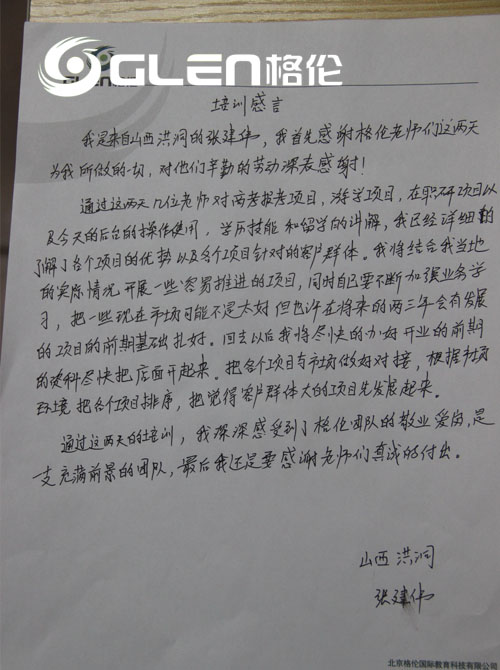 GLEN格伦
培训感言
我是来自山西洪洞的张建伟,我首先感谢格伦老师们这两天
为我所做的一切,对他们辛勤的劳动深表感谢!
通过这两天几位老师对高考报考项目,游学项目,在职研项目以
及今天的后台的操作使用,学历技能和留学的讲解,我已经详细的
了解了各个项目的优势以及各个项目针对的客户群体。我将结合我当地
的实际情况开展一些容易推进的项目,同时自己要不断加强业务学
习,把一些现在市场可能不是太好但也许在将来的两三年会有发展
的项目的前期基础扎好。回去以后我将尽快的办好开业的前期
的资料尽快把店面开起来。把各个项目与市场做好对接,根据市场
环境把各个项目排序,把觉得客户群体大的项目先发展起来。
通过这两天的培训,我深深感受到了格伦团队的敬业爱岗,是
支充满前景的团队,最后我还是要感谢老师们真诚的付出。
山西洪洞
张建伟
北京格伦国际教育科技有限公司